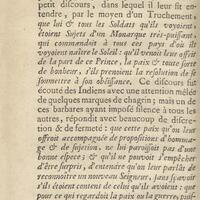 petit discours, dans lequel il leur fit en-
tendre, par le moyen d'un Truchement,
que lui & tous les Soldats qu'ils voyoient
étoient Sujets d'un Monarque très-puissant,
qui commandoit à tous ces pays d'où ils
voyoient naître le Soleil: qu'il venoit leur offrir
de la part de ce Prince, la paix & toute sorte
de bonheur, s'ils prenoient la résolution de se
soumettre à son obéissance. Ce discours fut
écouté des Indiens avec une attention mêlée
de quelques marques de chagrin; mais un de
ces barbares ayant imposé silence à tous les
autres, répondit avec beaucoup de discré-
tion & de fermeté: que cette paix qu'on leur
offroit accompagnée de propositions d'homma-
ge & de sujetion, ne lui paroissoit pas d'une
bonne espece; & qu'il ne pouvoit s'empêcher
d'être surpris, d'entendre qu'on leur parlât de
reconnoître un nouveau Seigneur, sans sçavoir
s'ils étoient contens de celui qu'ils avoient: que
pour ce qui regardoit la paix ou la guerre, puis-